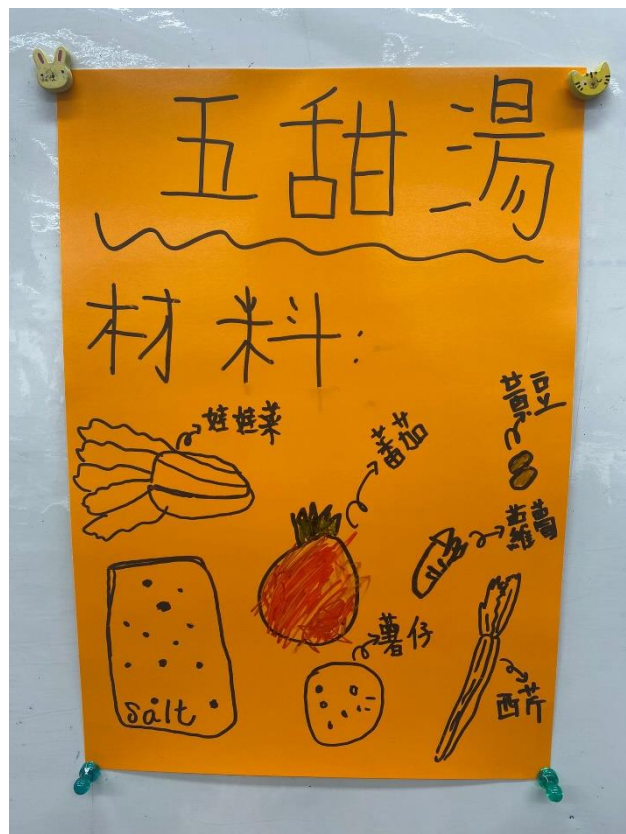 五甜湯
材料:
娃娃菜
蕃茄
黃豆
蘿蔔
薯仔
西芹
salt